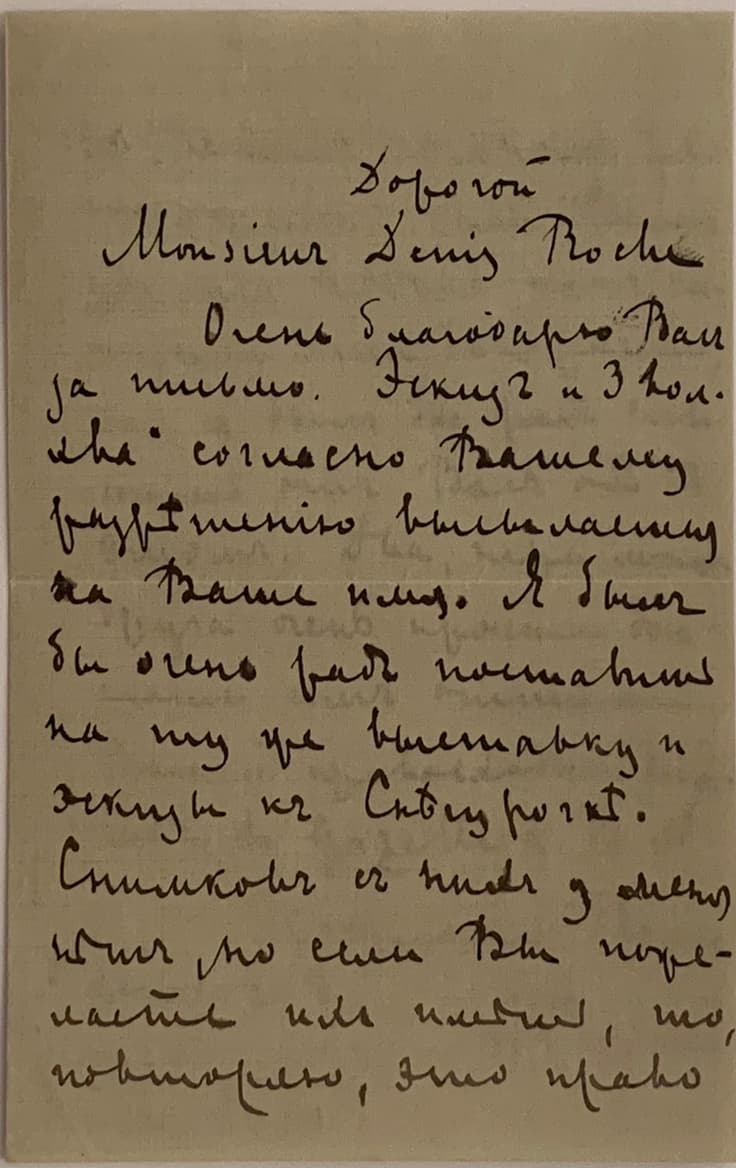 Дорогой
Monsieur Denis Roche
Очень благодарю Вас
за письмо. Эскизъ и 3
согласно Вашему
разрѣшенію высылаетъся
на Ваше имя. Я былъ
бы очень радъ поставить
на ту же выставку и
эскизы къ Снѣгурочкѣ.
Снимковъ съ нихъ у меня
нѣтъ, но если Вы поже-
лаете ихъ имѣть, то,
повторяю, это право